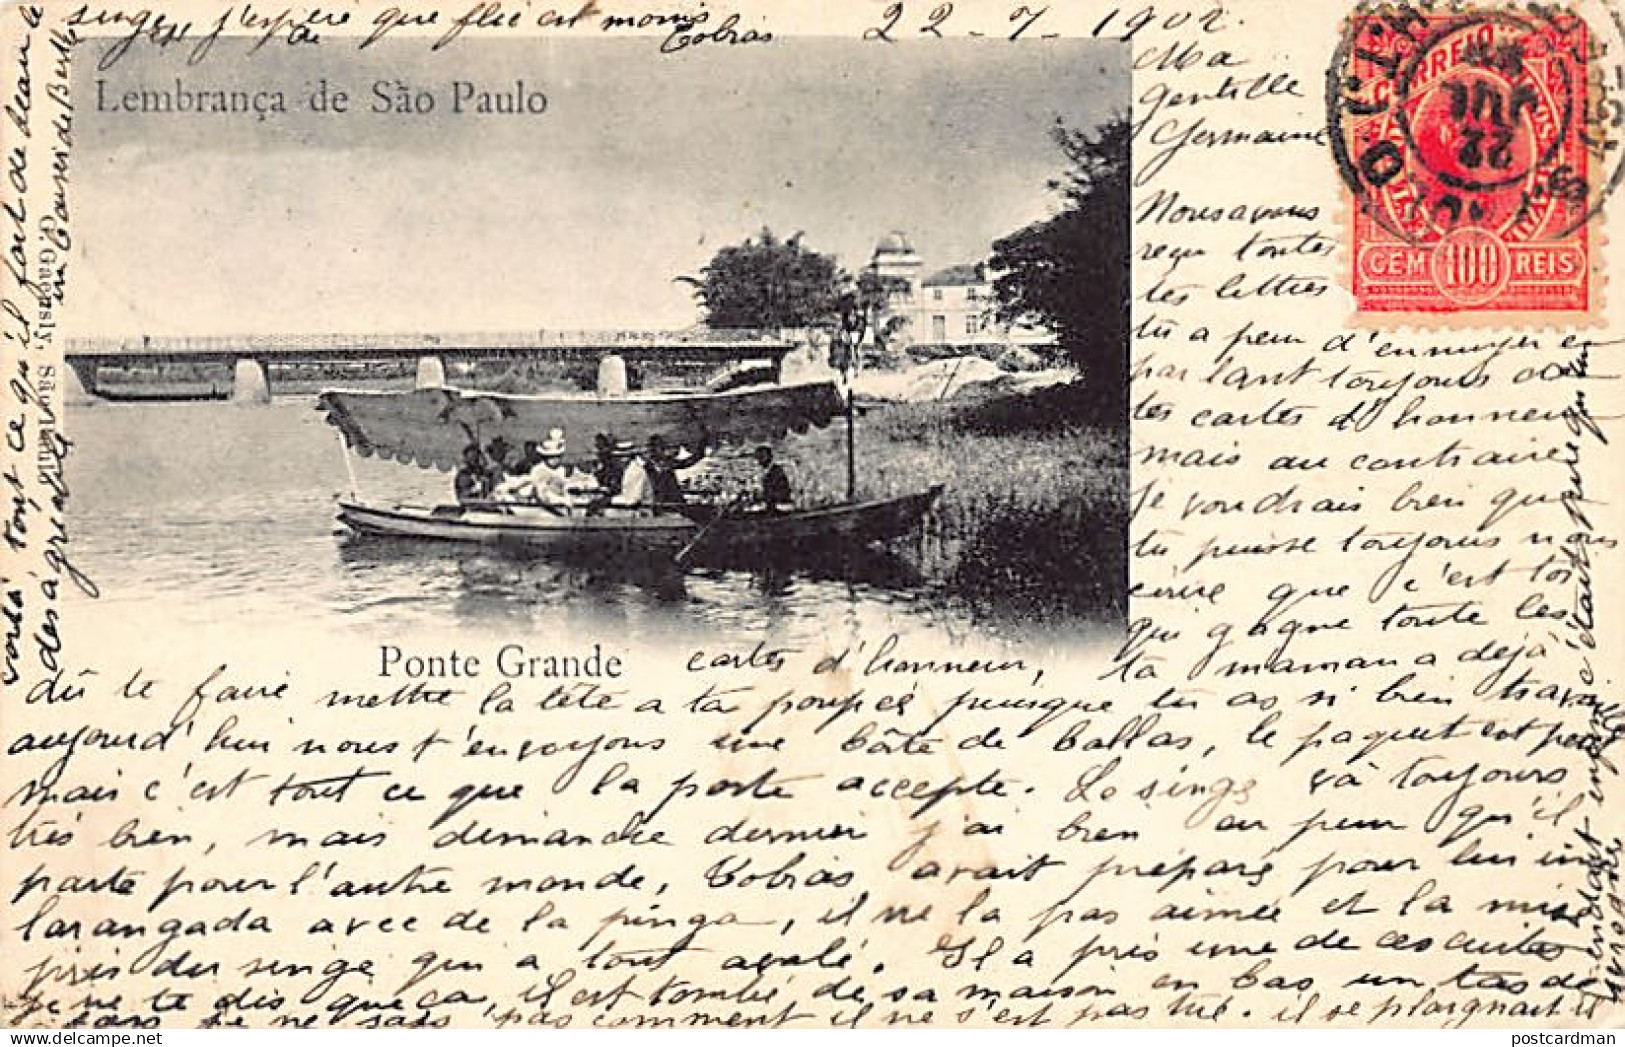 22-7-1902.
Ma
gentille
Germaine
Nous avons
reçu toutes
tes lettres
tu a peur d'ennuyer en
parlant toujours de
tes cartes d'honneur
mais au contraire
je voudrais bien que
tu puisse toujours nous
écrire que c'est toi
qui gagne toute les
cartes d'honneur, ta maman a déjà
dû te faire mettre la tête a ta poupée puisque tu as si bien
aujourd'hui nous t'envoyons une boîte de ballas, le paquet est
mais c'est tout ce que la poste accepte. Le singe va toujours
très bien, mais dimanche dernier j'ai bien eu peur qu'il
parte pour l'autre monde, Tobias avait préparé pour lui une
larangada avec de la pinga, il ne la pas aimée et la mise
près du singe qui a tout avalé. Il a pris une de ces cuites
je ne te dis que ça, il est tombé de sa maison en bas un tas de
fois je ne sais pas comment il ne s'est pas tué. il se plaignait
c'était pire qu'un
voila tout ce qu'il fait de beau le
singe, j'espère que flic est moins
désagréable
Tobias
Lembrança de São Paulo
Ponte Grande
G. Gaensly, São Paulo
CORREIO
CEM 100 REIS
22
JUL
postcardman